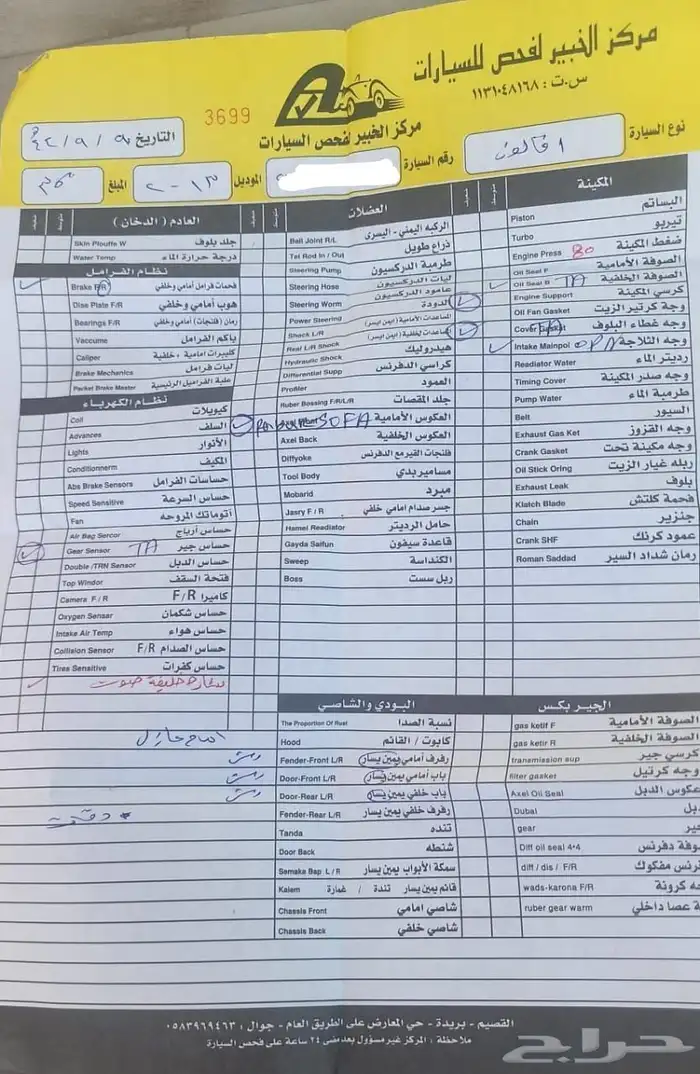 مركز الخبير لفحص للسيارات
س.ت : ١١٣١٠٤٨١٦٨
3699
مركز الخبير لفحص السيارات
التاريخ ٩ / ٩ / ٤٢
نوع السيارة افالون
رقم السيارة
الموديل ٢٠١٣
المبلغ
المكينة
Piston البساتم
Turbo تيربو
Engine Press 80 ضغط المكينة
Oil Seal F الصوفة الأمامية
Oil Seal B الصوفة الخلفية
Engine Support كرسي المكينة
Oil Fan Gasket وجه كرتير الزيت
Cover Gasket وجه غطاء البلوف
Intake Mainpol وجه الثلاجة
Readiator Water رديتر الماء
Timing Cover وجه صدر المكينة
Pump Water طرمبة الماء
Belt السيور
Exhaust Gas Ket وجه القزوز
Crank Gasket وجه مكينة تحت
Oil Stick Oring ربله غيار الزيت
Exhaust Leak بلوف
Klatch Blade فحمة كلتش
Chain جنزير
Crank SHF عمود كرنك
Roman Saddad رمان شداد السير
العضلات
Ball Joint R/L الركبه اليمني - اليسرى
Tei Rod In / Out ذراع طويل
Steering Pump طرمبة الدركسيون
Steering Hose ليات الدركسيون
Steering Worm عامود الدركسيون
Power Steering الدودة
Shock L/R المساعدات الأمامية (ايمن ايسر)
Real L/R Shock مساعدات خلفية (ايمن ايسر)
Hydraulic Shock هيدروليك
Differential Supp كراسي الدفرنس
Profiler العمود
Ruber Bossing F/R/L/R جلد المقصات
العكوس الأمامية
Axel Back العكوس الخلفية
Diffyoke فلنجات القير مع الدفرنس
Tool Body مسامير بدي
Mobarid مبرد
Jasry F / R جسر صدام امامي خلفي
Hamel Readiator حامل الرديتر
Gayda Saifun قاعدة سيفون
Sweep الكنداسة
Boss ربل سست
العادم ( الدخان )
Skin Plouffe W جلد بلوف
Water Temp درجة حرارة الماء
نظام الفرامل
Brake F/R فحمات فرامل أمامي وخلفي
Disc Plate F/R هوب أمامي وخلفي
Bearings F/R رمان (فلنجات) أمامي وخلفي
Vaccume باكم الفرامل
Caliper كليبرات امامية ، خلفية
Brake Mechanics ليات فرامل
Packet Brake Master علبة الفرامل الرئيسية
نظام الكهرباء
Coil كويلات
Advances السلف
Lights الأنوار
Conditionerm المكيف
Abs Brake Sensors حساسات الفرامل
Speed Sensitive حساس السرعة
Fan أتوماتك المروحه
Air Bag Sercor حساس أرباج
Gear Sensor TA حساس جير
Double /TRN Sensor حساس الدبل
Top Windor فتحة السقف
Camera F / R كاميرا F/R
Oxygen Sensar حساس شكمان
Intake Air Temp حساس هواء
Collision Sensor حساس الصدام F/R
Tires Sensitive حساس كفرات
خليفة صوت
الجير بكس
gas ketif F الصوفة الأمامية
gas ketir R الصوفة الخلفية
transmission sup كرسي جير
filter gasket وجه كرتيل
Axel Oil Seal عكوس الدبل
Dubal
gear
Diff oil seal 4*4
diff / dis / F/R
wads-karona F/R
ruber gear warm
البودي والشاصي
The Proportion Of Rust نسبة الصدا
Hood كابوت / القائم
Fender-Front L/R رفرف أمامي يمين يسار رش
Door-Front L/R باب أمامي يمين يسار رش
Door-Rear L/R باب خلفي يمين يسار رش
Fender-Rear L/R رفرف خلفي يمين يسار
Tanda تنده
Door Back شنطه
Samaka Bap L/R سمكة الأبواب يمين يسار
Kalem قائم يمين يسار تندة / غمارة
Chassis Front شاصي امامي
Chassis Back شاصي خلفي
القصيم - بريدة - حي المعارض على الطريق العام - جوال : ٠٥٨٣٩٦٩٤٦٣
ملاحظة : المركز غير مسؤول بعد مضى ٢٤ ساعة على فحص السيارة
حراج